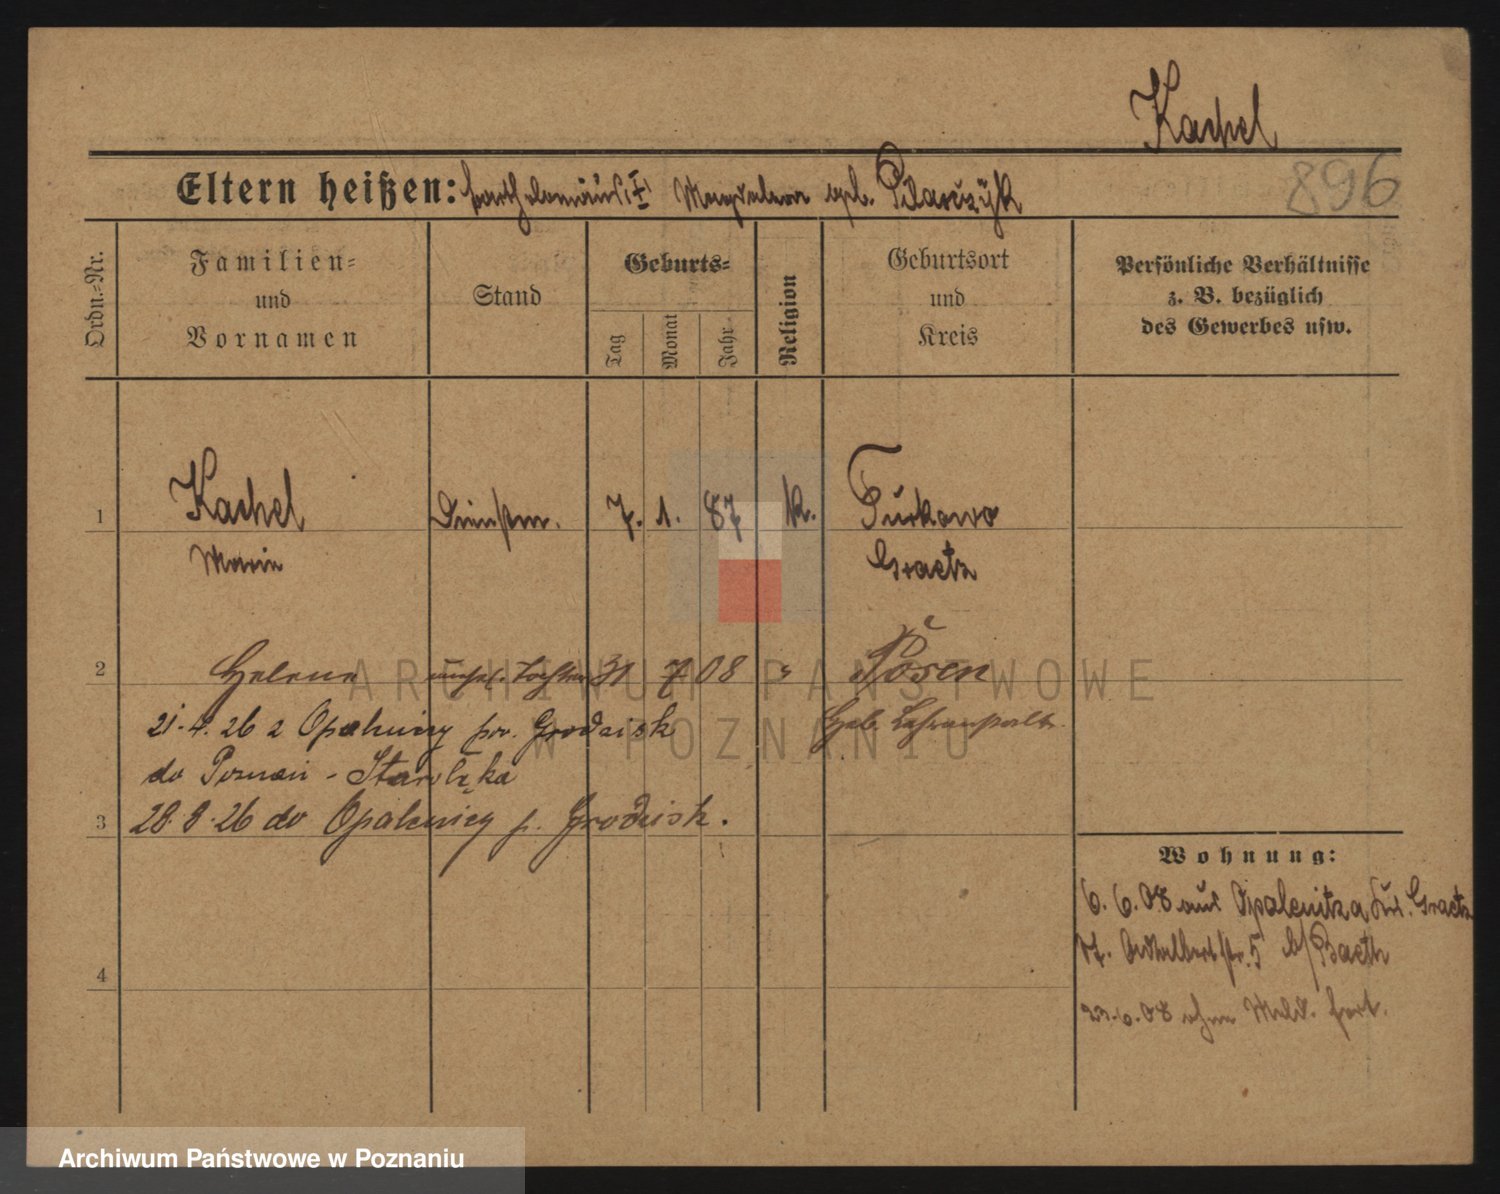 Kachel
896
Eltern heißen: Bartholomäus, Magdalena geb. Pilarczyk
Ordn.-Nr.
Familien-
und
Vornamen
Stand
Geburts-
Tag
Monat
Jahr
Religion
Geburtsort
und
Kreis
Persönliche Verhältnisse
z. B. bezüglich
des Gewerbes usw.
1 Kachel Dienstm. 7. 1. 87 k. Turkowo
Marie Graetz
2 Helene unehel. Tochter 31 7 08 " Posen
Geb. Lehranstalt
21.4.26 z Opalenicy pow. Grodzisk
do Poznań - Starołęka
3 28.8.26 do Opalenicy p. Grodzisk.
Wohnung:
6.6.08 aus Opalenitza Kr. Graetz
Adalbertstr. 5 b/Baeth
23.6.08 ohne Meld. fort.
4
ARCHIWUM PAŃSTWOWE
W POZNANIU
Archiwum Państwowe w Poznaniu